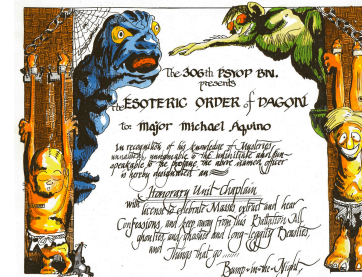 The 306th PSYOP BN.
presents
the ESOTERIC ORDER of DAGON
to: Major Michael Aquino
In recognition of his knowledge of Mysteries
unnatural, unnamable to the uninitiate and un-
speakable to the profane the above named officer
is hereby designated an
Honorary Unit Chaplain
with license to celebrate Masses, extract and hear
Confessions, and keep away from this Battalion All
ghosties, and ghoulies and long-leggity Beasties, and
Things that go ......
Bump-in-the-Night,